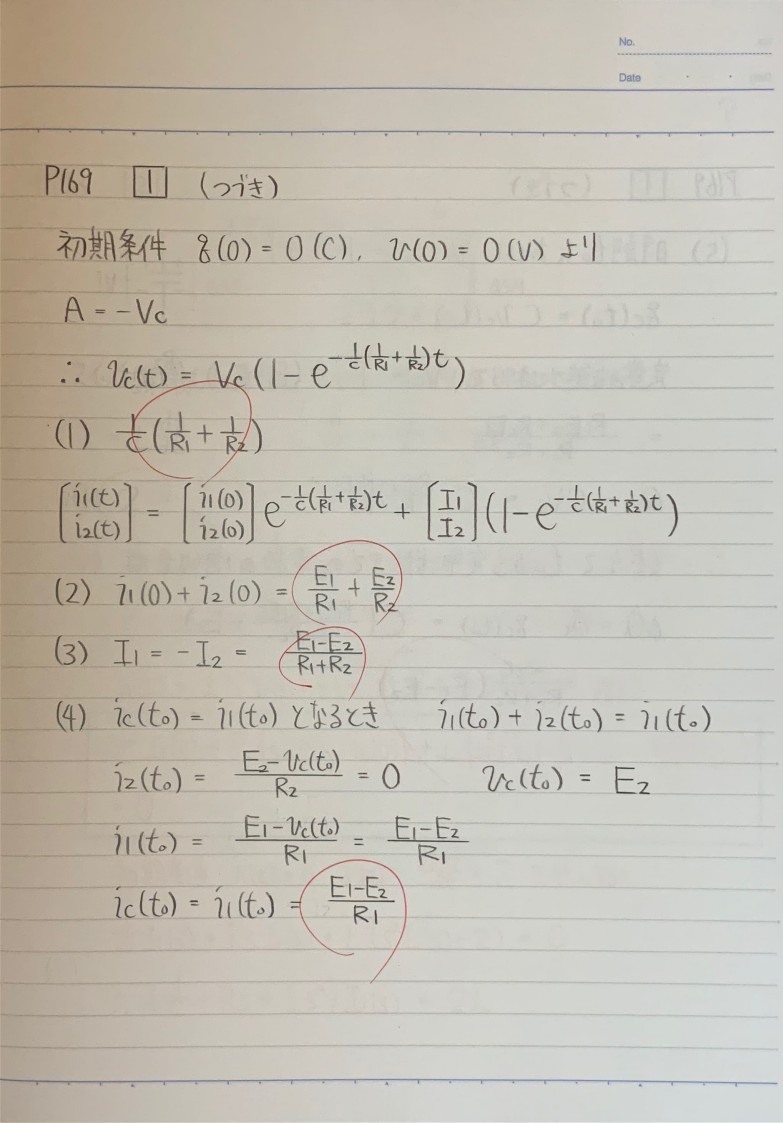 No.
Date
P169 1 (つづき)
初期条件 q(0) = 0(C), v(0) = 0(V) より
A = -Vc
∴ vc(t) = Vc(1-e^{-\frac{1}{C}(\frac{1}{R1}+\frac{1}{R2})t})
(1) \frac{1}{C}(\frac{1}{R1}+\frac{1}{R2})
[i1(t) i2(t)] = [i1(0) i2(0)] e^{-\frac{1}{C}(\frac{1}{R1}+\frac{1}{R2})t} + [I1 I2] (1-e^{-\frac{1}{C}(\frac{1}{R1}+\frac{1}{R2})t})
(2) i1(0)+i2(0) = \frac{E1}{R1} + \frac{E2}{R2}
(3) I1 = -I2 = \frac{E1-E2}{R1+R2}
(4) ic(t0) = i1(t0) となるとき i1(t0) + i2(t0) = i1(t0)
i2(t0) = \frac{E2-vc(t0)}{R2} = 0 vc(t0) = E2
i1(t0) = \frac{E1-vc(t0)}{R1} = \frac{E1-E2}{R1}
ic(t0) = i1(t0) = \frac{E1-E2}{R1}